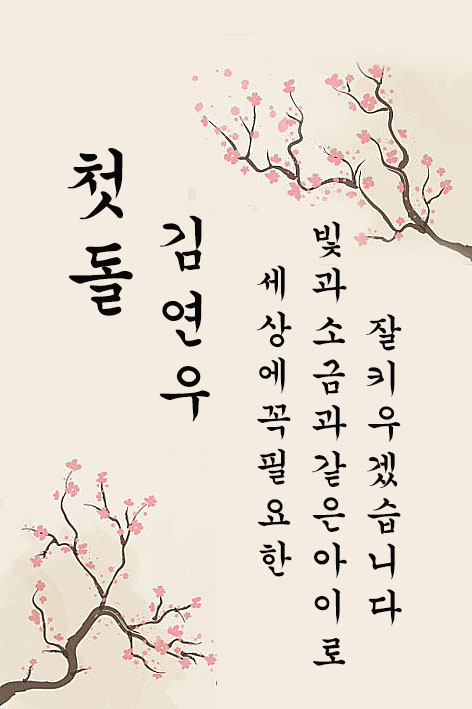 첫돌
김연우
세상에꼭필요한
빛과소금과같은아이로
잘키우겠습니다